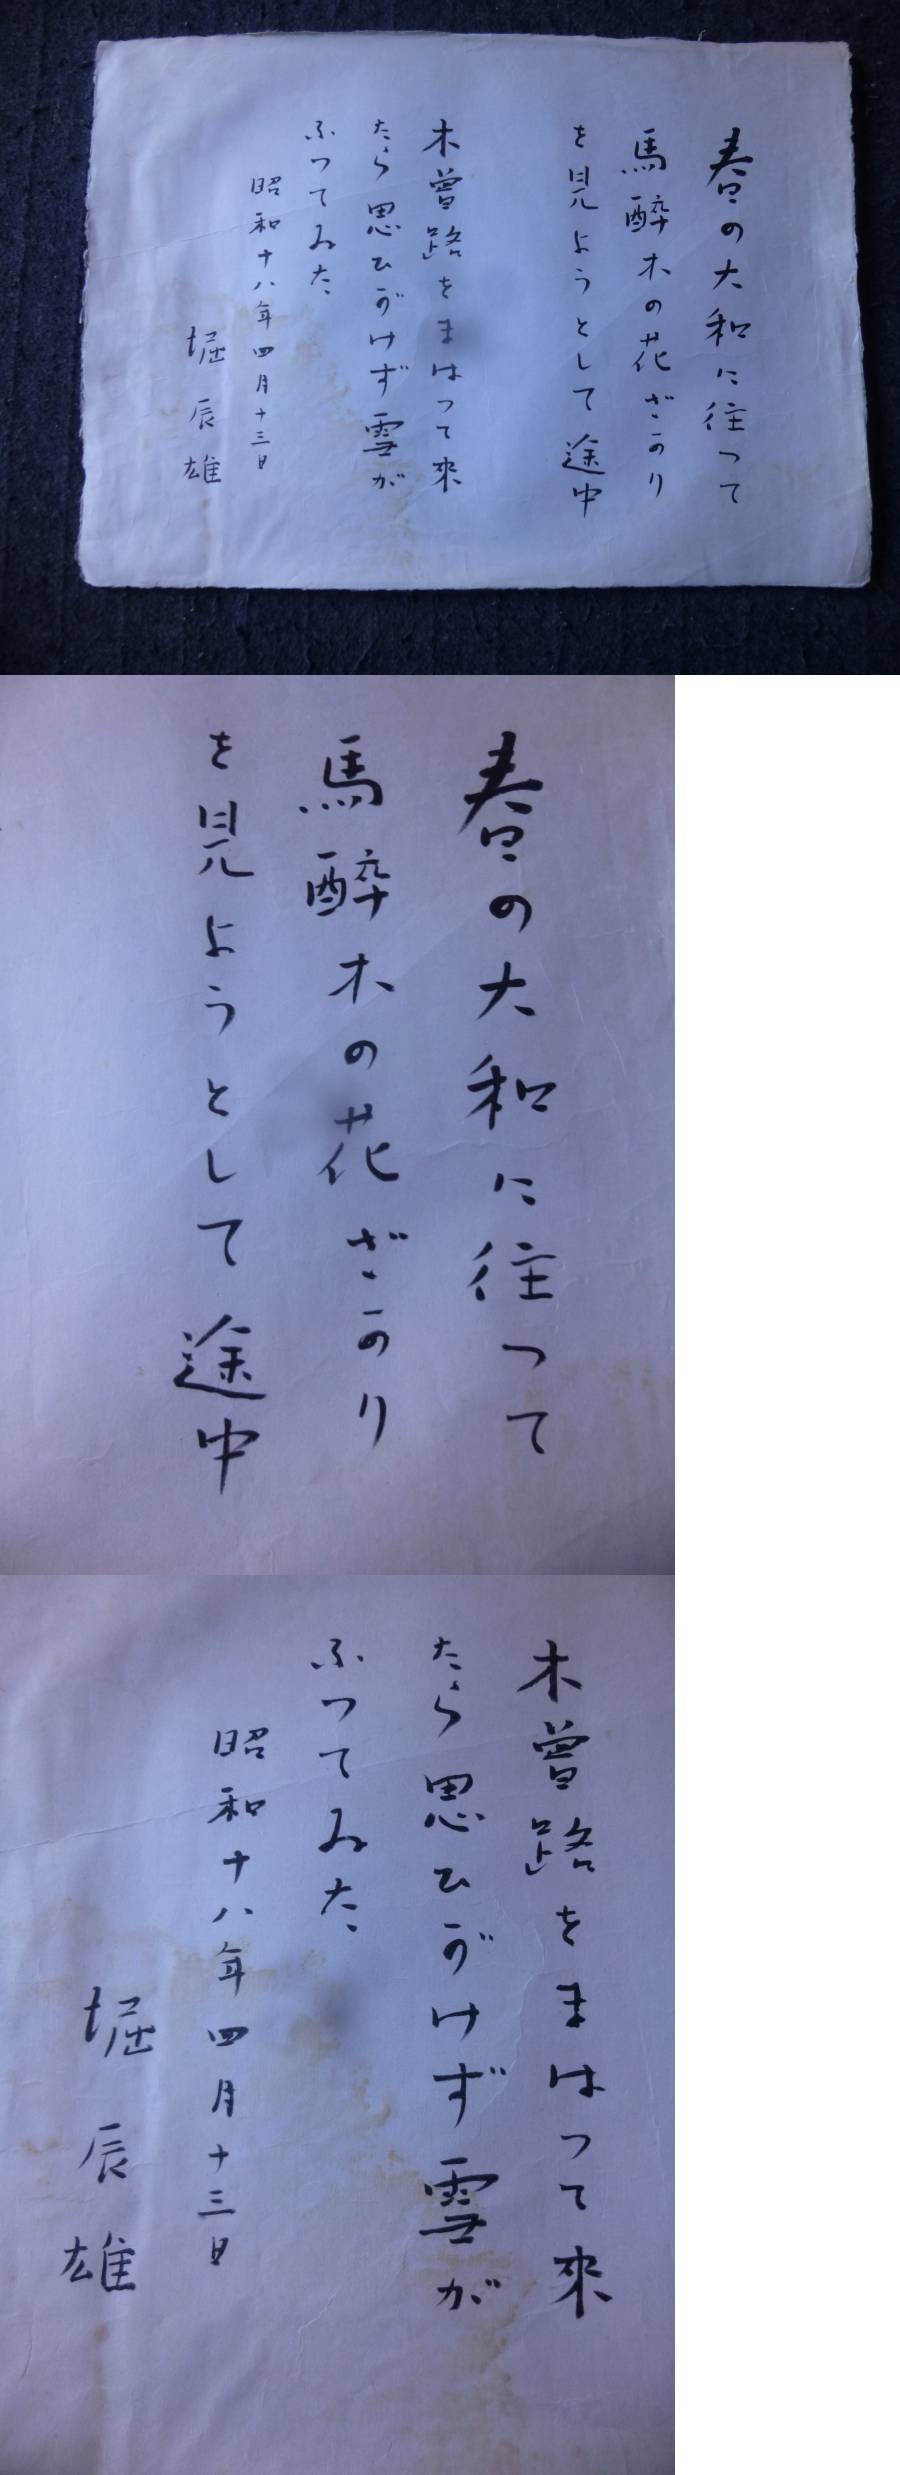 春の大和に往つて
馬酔木の花ざかり
を見ようとして途中
木曾路をまはつて來
たら思ひがけず雪が
ふつてゐた、
昭和十八年四月十三日
堀辰雄
春の大和に往つて
馬酔木の花ざかり
を見ようとして途中
木曾路をまはつて來
たら思ひがけず雪が
ふつてゐた、
昭和十八年四月十三日
堀辰雄